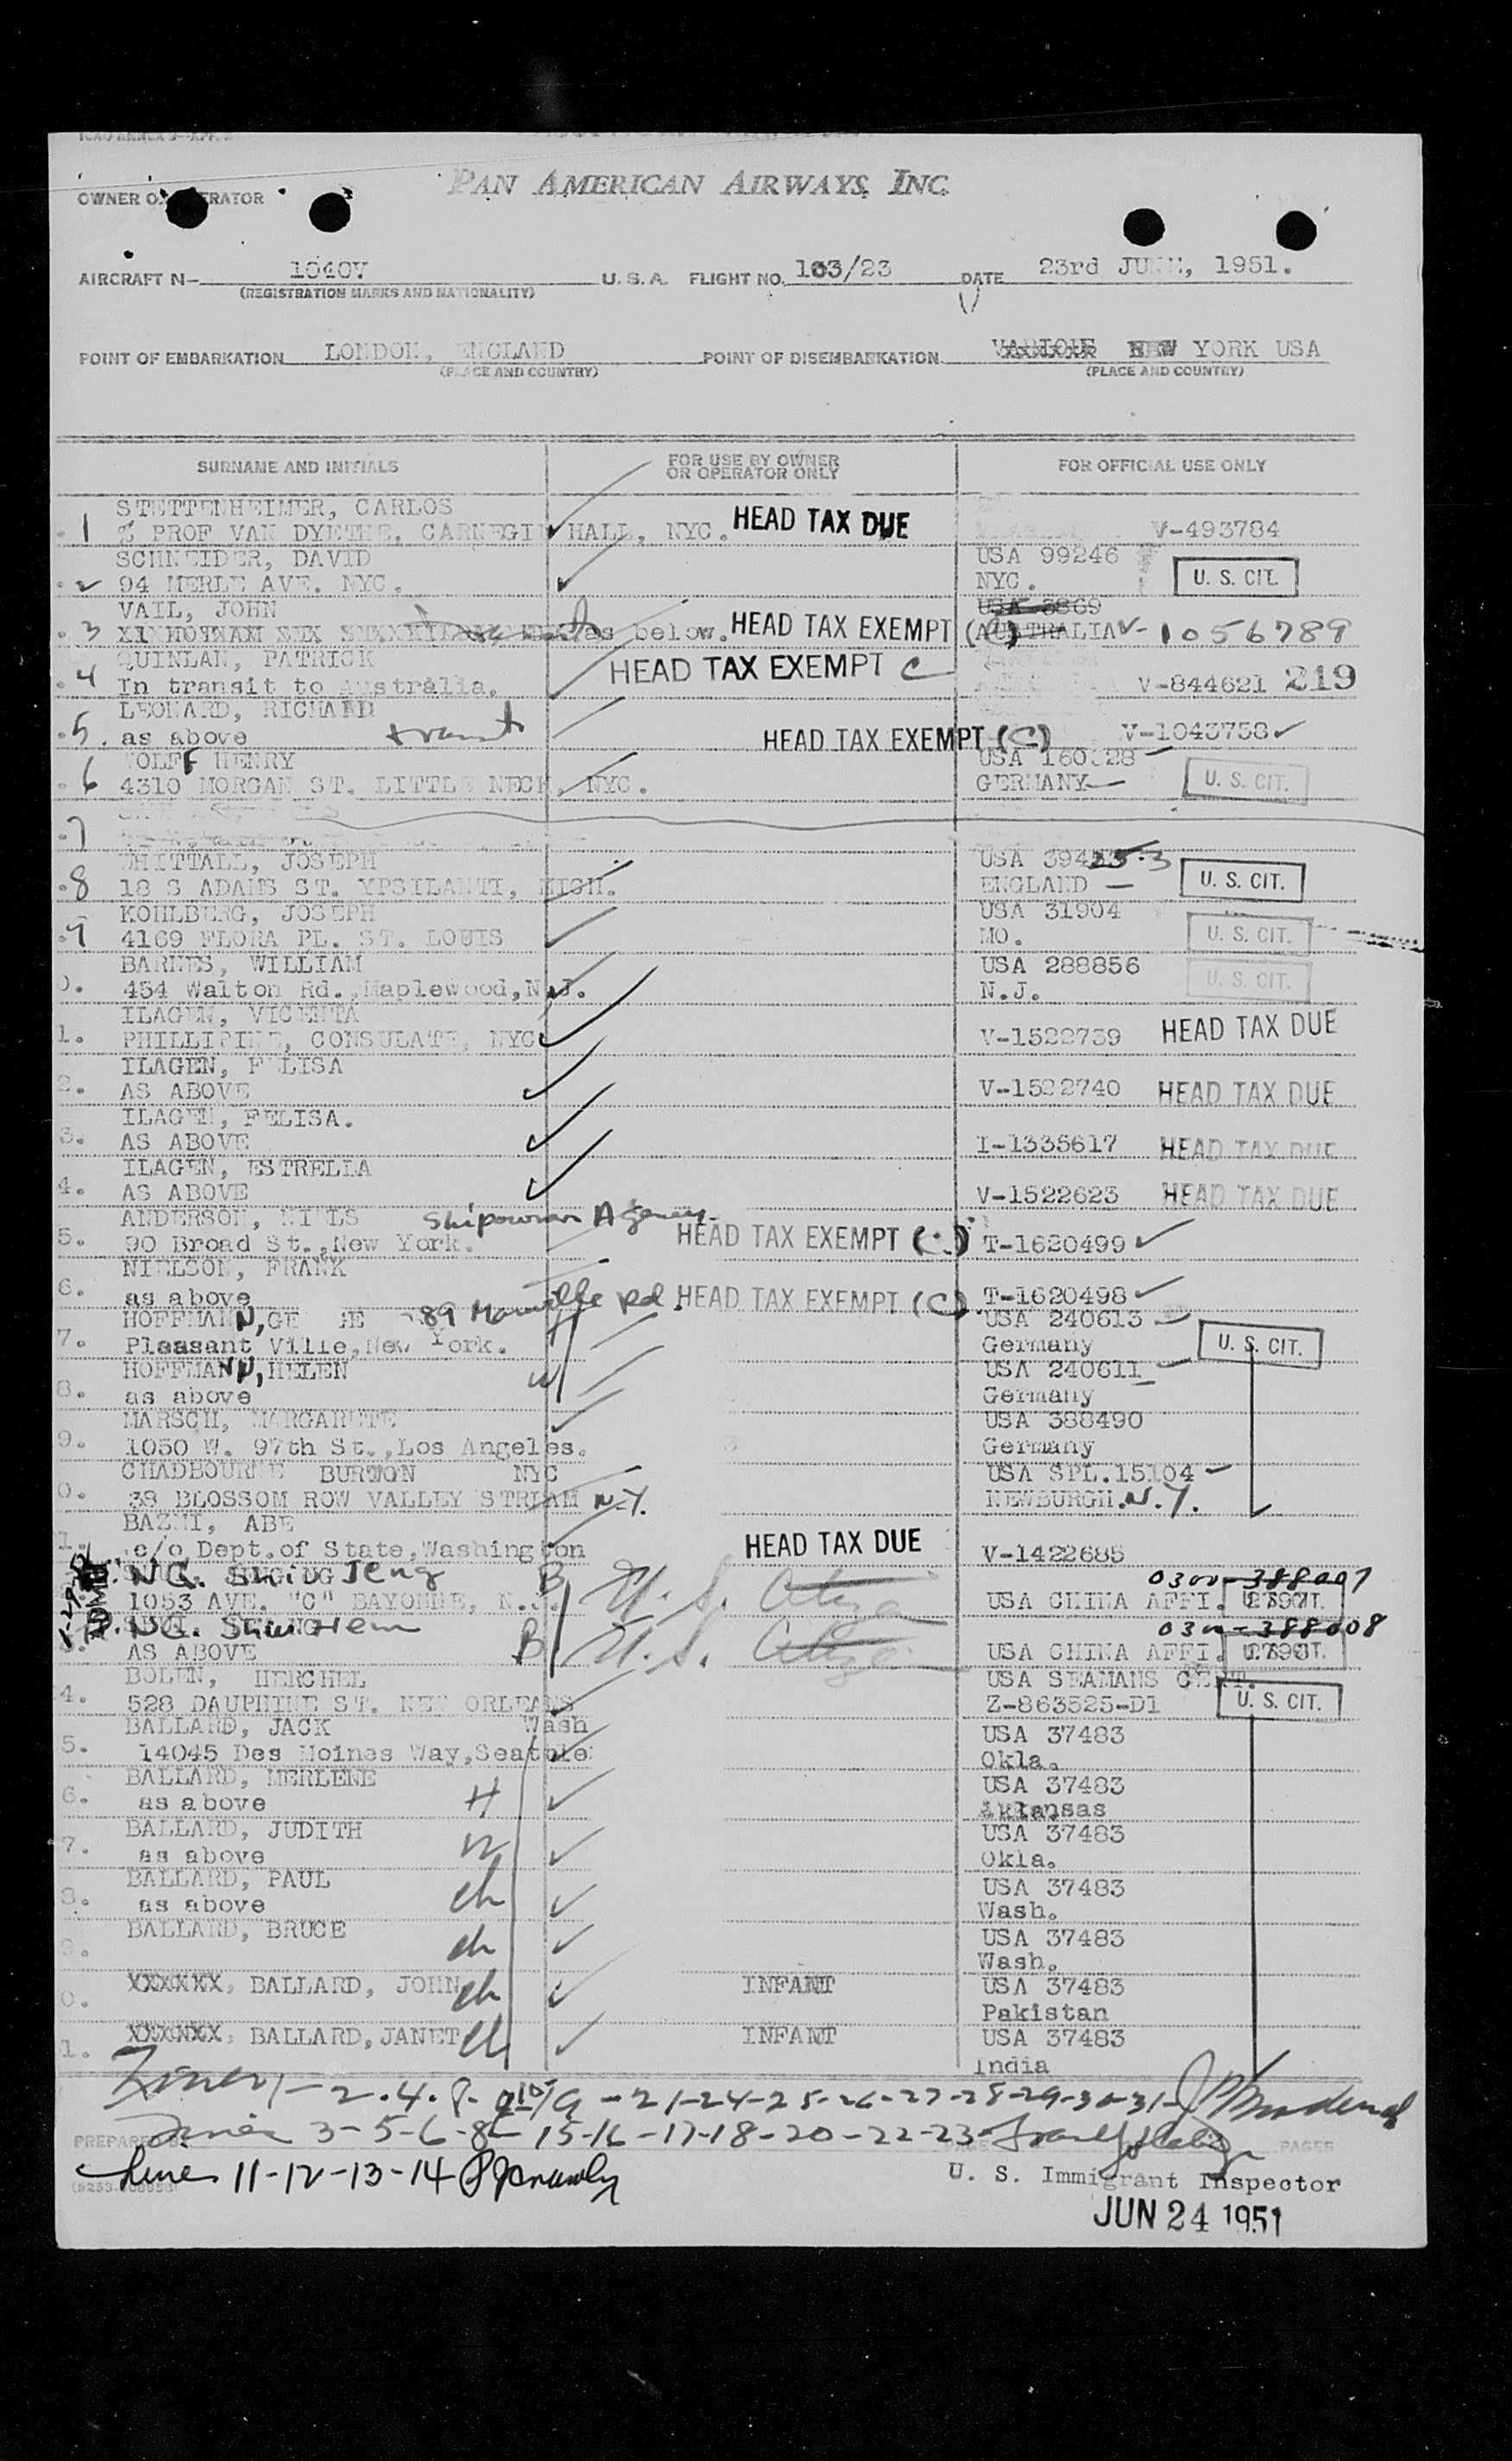 ICAO ANNEX 9-APP. 2
PAN AMERICAN AIRWAYS, INC.
OWNER O ERATOR
AIRCRAFT N- 1040V U. S. A. FLIGHT NO. 103/23 DATE 23rd JUNE, 1951.
(REGISTRATION MARKS AND NATIONALITY)
POINT OF EMBARKATION LONDON, ENGLAND POINT OF DISEMBARKATION NEW YORK USA
(PLACE AND COUNTRY) (PLACE AND COUNTRY)
SURNAME AND INITIALS FOR USE BY OWNER OR OPERATOR ONLY FOR OFFICIAL USE ONLY
STETTENHEIMER, CARLOS
1 % PROF VAN DYETHE, CARNEGIE HALL, NYC. HEAD TAX DUE V-493784
SCHNEIDER, DAVID USA 99246
2 94 MERLE AVE. NYC. NYC. U. S. CIT.
VAIL, JOHN USA 3869
3 as below. HEAD TAX EXEMPT (C) AUSTRALIA V-1056789
QUINLAN, PATRICK
4 In transit to Australia. HEAD TAX EXEMPT C V-844621 219
LEONARD, RICHARD
5. as above transit HEAD TAX EXEMPT (C) V-1043758
WOLFF HENRY USA 160 28
6 4310 MORGAN ST. LITTLE NECK, NYC. GERMANY U. S. CIT.
7
WHITTALL, JOSEPH USA 394
8 18 S ADAMS ST. YPSILANTI, MICH. ENGLAND U. S. CIT.
KOHLBERG, JOSEPH USA 31904
9 4169 FLORA PL. ST. LOUIS MO. U. S. CIT.
BARNES, WILLIAM USA 288856
0. 454 Walton Rd., Maplewood, N.J. N.J. U. S. CIT.
ILAGEN, VICENTA
1. PHILLIPINE, CONSULATE, NYC V-1522739 HEAD TAX DUE
ILAGEN, FELISA
2. AS ABOVE V-1522740 HEAD TAX DUE
ILAGEN, FELISA.
3. AS ABOVE I-1335617 HEAD TAX DUE
ILAGEN, ESTRELLA
4. AS ABOVE V-1522623 HEAD TAX DUE
ANDERSON, NILS Shipowner Agency
5. 90 Broad St., New York. HEAD TAX EXEMPT (C) T-1620499
NIELSON, FRANK
6. as above HEAD TAX EXEMPT (C) T-1620498
HOFFMANN, GE 89 Manville Rd. USA 240613
7. Pleasant Ville, New York. Germany U. S. CIT.
HOFFMANN, HELEN USA 240611
8. as above W Germany
MARSCH, MARGARETE USA 388490
9. 1050 W. 97th St., Los Angeles. Germany
CHADBOURNE BURTON NYC USA SPL. 15104
0. 38 BLOSSOM ROW VALLEY STREAM N.Y. NEWBURGH. N.Y.
BAZNI, ABE
1. c/o Dept. of State, Washington HEAD TAX DUE V-1422685
NG. Shiu Jeng B U. S. Citizen 0300-388007
1053 AVE. "C" BAYONNE, N.J. USA CHINA AFFI.
NG. Shiu Hem 0300-388008
AS ABOVE B U. S. Citizen USA CHINA AFFI.
BOLEN, HERCHEL USA SEAMANS CERT.
4. 528 DAUPHINE ST. NEW ORLEANS Z-863525-D1 U. S. CIT.
BALLARD, JACK Wash USA 37483
5. 14045 Des Moines Way, Seattle Okla.
BALLARD, MERLENE USA 37483
6. as above H Arkansas
BALLARD, JUDITH USA 37483
7. as above W Okla.
BALLARD, PAUL USA 37483
8. as above ch Wash.
BALLARD, BRUCE USA 37483
9. ch Wash.
XXXXXX, BALLARD, JOHN ch INFANT USA 37483
0. Pakistan
XXXXXX, BALLARD, JANET ch INFANT USA 37483
1. India
Lines 1-2-4-9-10-19-21-24-25-26-27-28-29-30-31
PREPARED BY Lines 3-5-6-8-15-16-17-18-20-22-23 PAGES
Lines 11-12-13-14
U. S. Immigrant Inspector
JUN 24 1951